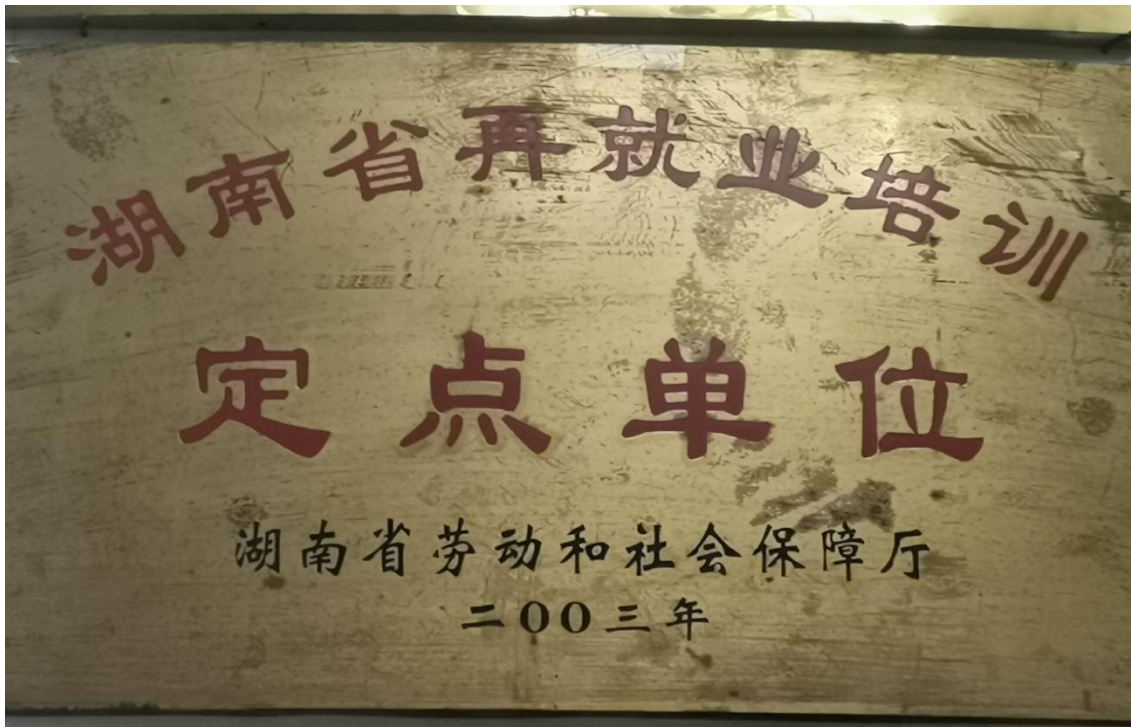 湖南省再就业培训
定点单位
湖南省劳动和社会保障厅
二OO三年